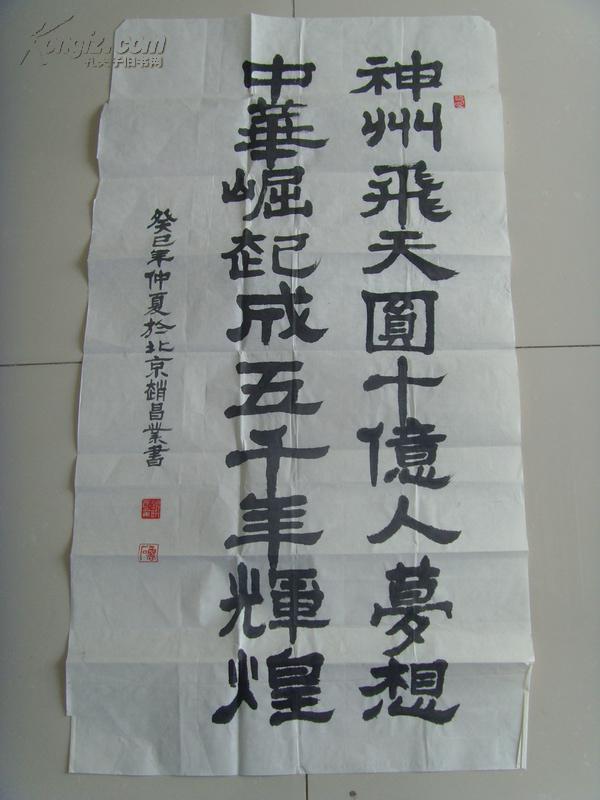 神州飛天圓十億人夢想
中華崛起成五千年輝煌
癸巳年仲夏於北京趙昌業書
Kongfz.com
孔夫子旧书网